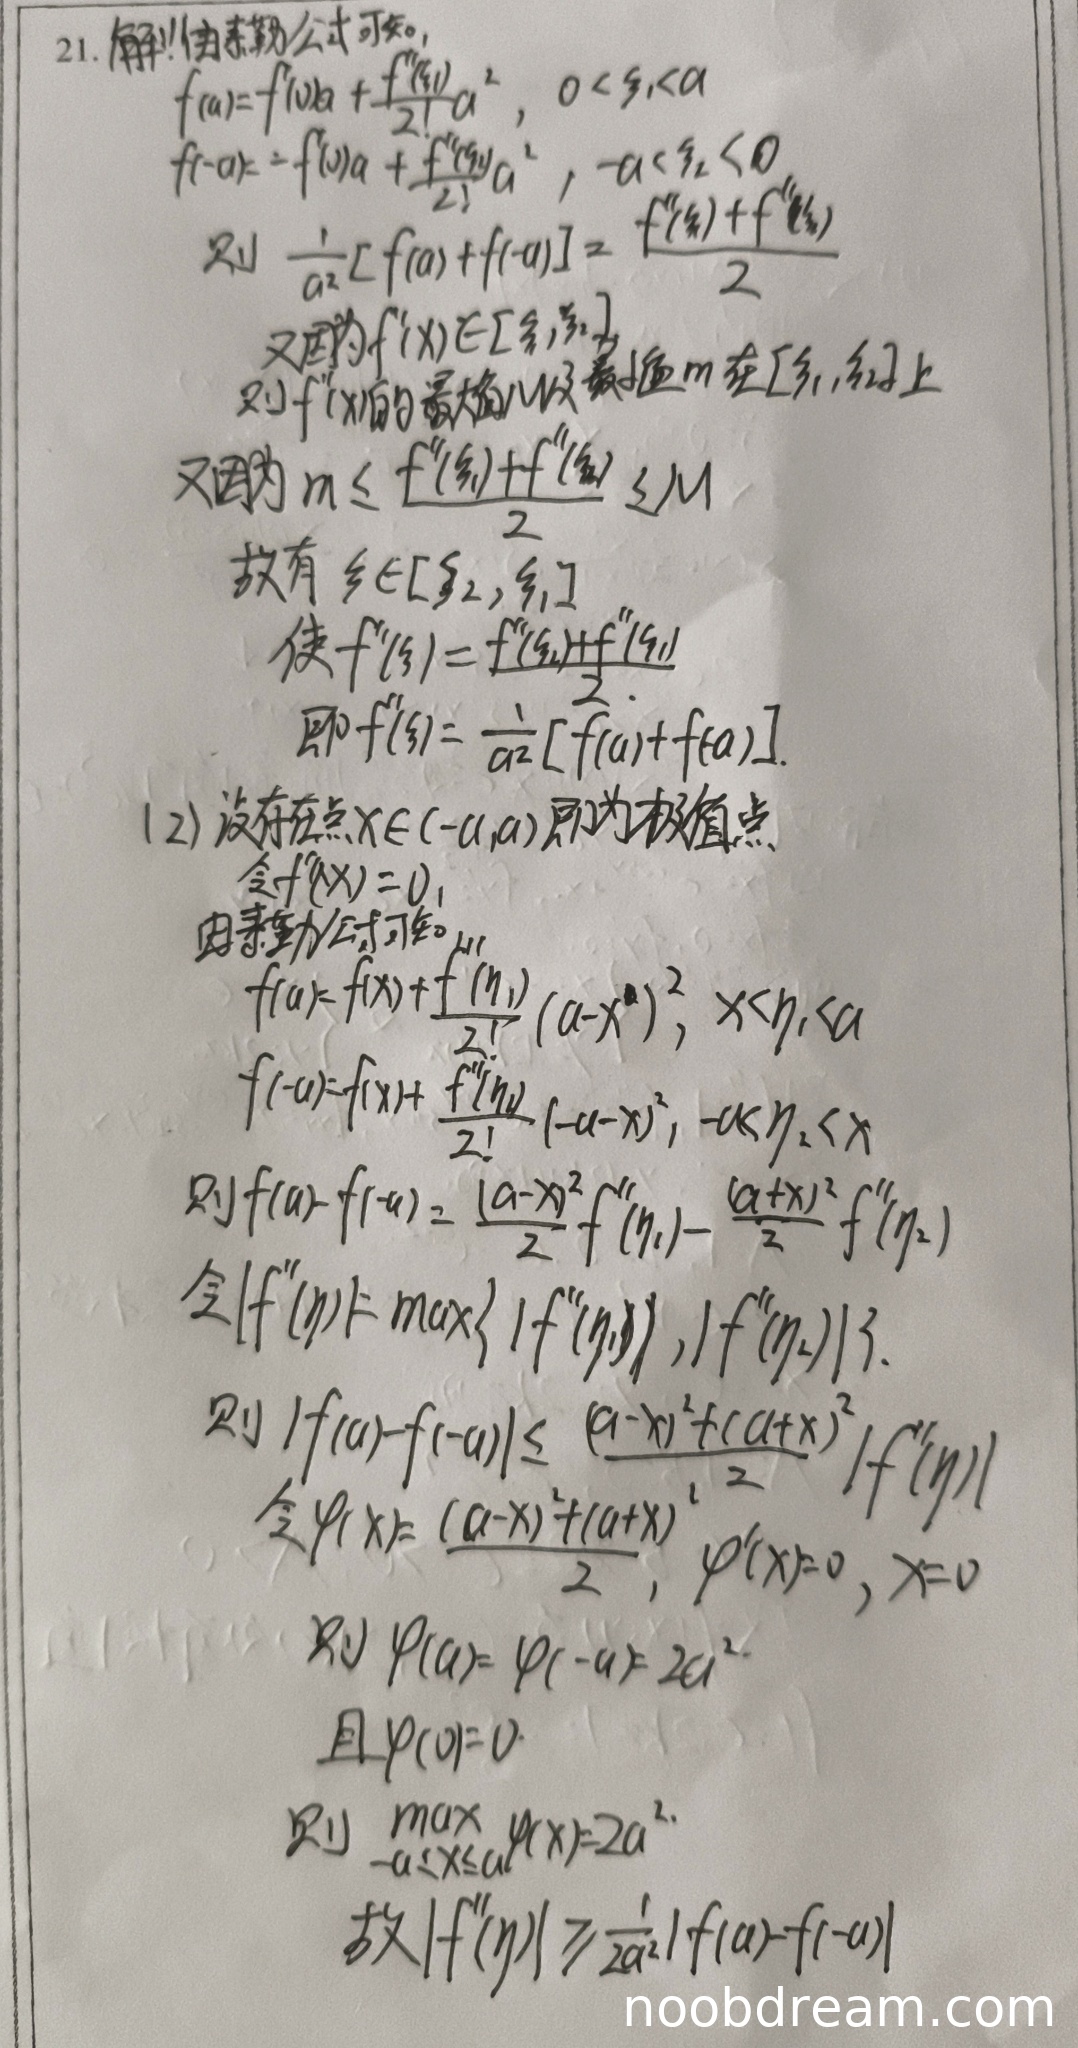 21. 解:(1)由泰勒公式可知,
f(a)=f'(0)a+\frac{f''(ξ₁)}{2!}a², 0<ξ₁<a
f(-a)=-f'(0)a+\frac{f''(ξ₂)}{2!}a², -a<ξ₂<0
则 \frac{1}{a²}[f(a)+f(-a)]=\frac{f''(ξ₁)+f''(ξ₂)}{2}
又因为f''(x)∈[ξ₁,ξ₂],
则f''(x)的最大值M及最小值m在[ξ₁,ξ₂]上
又因为 m≤\frac{f''(ξ₁)+f''(ξ₂)}{2}≤M
故有 ξ∈[ξ₂,ξ₁]
使f''(ξ)=\frac{f''(ξ₂)+f''(ξ₁)}{2}.
即f''(ξ)=\frac{1}{a²}[f(a)+f(-a)].
(2)设存在点x∈(-a,a)即为极值点
令f'(x)=0,
由泰勒公式可知
f(a)=f(x)+\frac{f''(η₁)}{2!}(a-x)², x<η₁<a
f(-a)=f(x)+\frac{f''(η₂)}{2!}(-a-x)², -a<η₂<x
则f(a)-f(-a)=\frac{(a-x)²}{2}f''(η₁)-\frac{(a+x)²}{2}f''(η₂)
令|f''(η)|=max{|f''(η₁)|,|f''(η₂)|}.
则|f(a)-f(-a)|≤\frac{(a-x)²+(a+x)²}{2}|f''(η)|
令φ(x)=\frac{(a-x)²+(a+x)²}{2}, φ'(x)=0, x=0
则 φ(a)=φ(-a)=2a².
且φ(0)=0.
则 max φ(x)=2a².
-a≤x≤a
故|f''(η)|≥\frac{1}{2a²}|f(a)-f(-a)|
noobdream.com